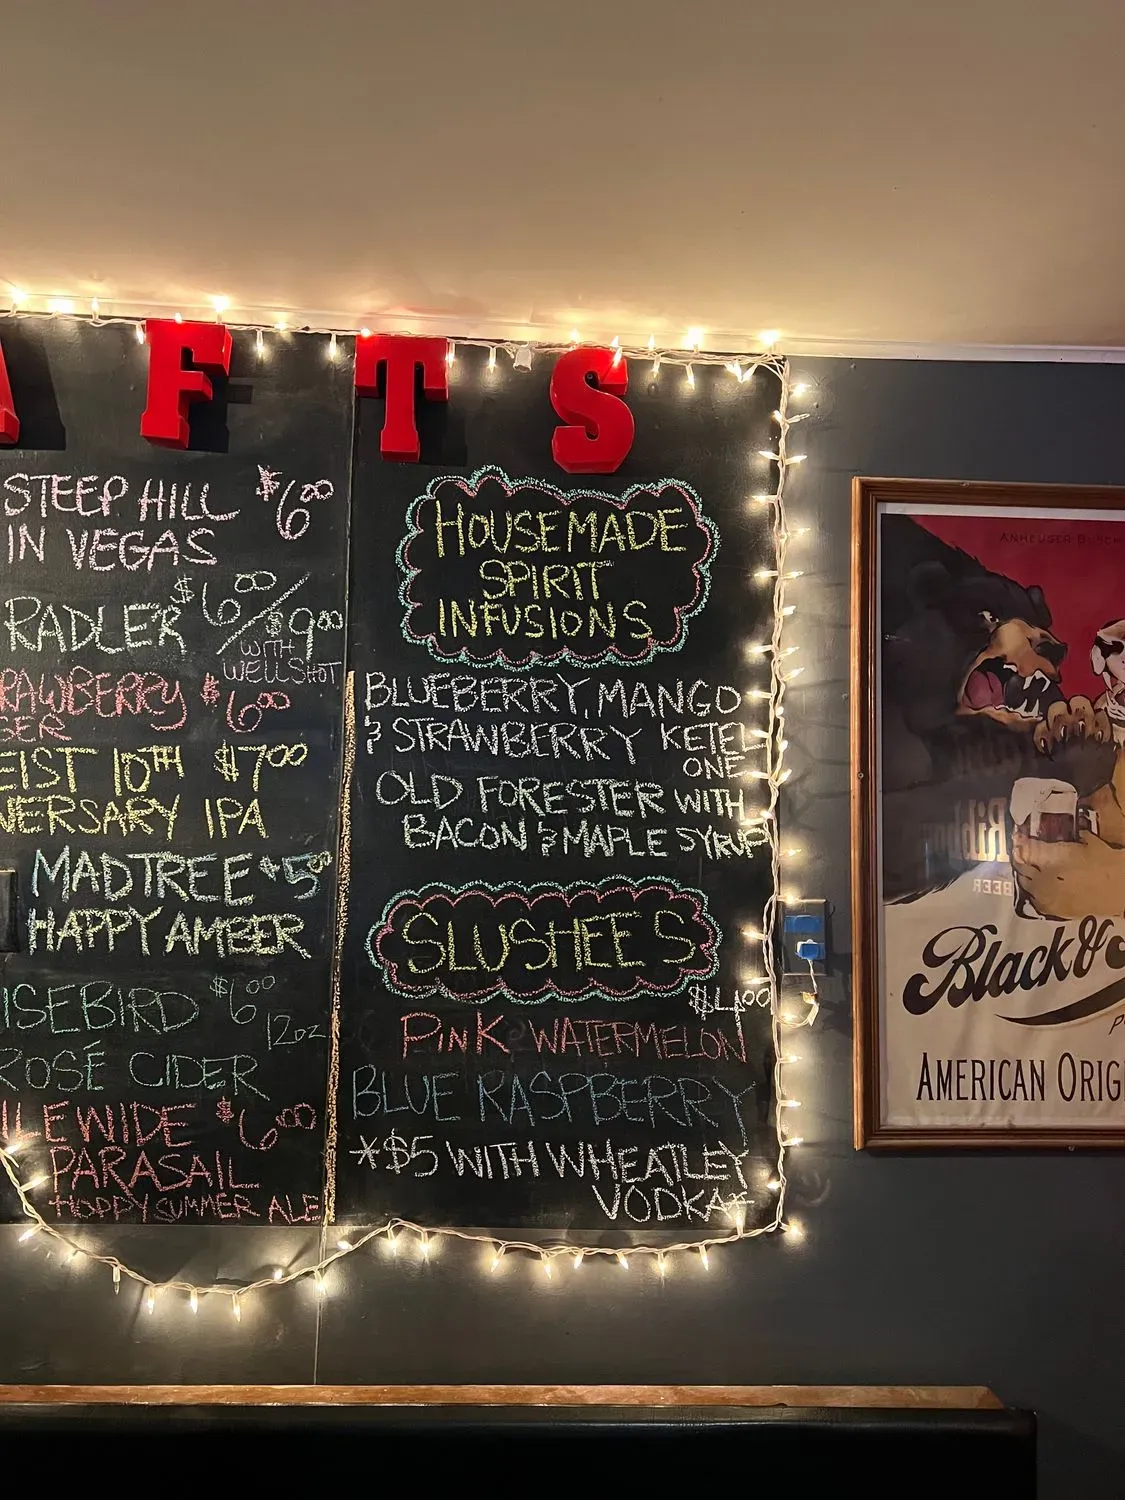 A F T S
STEEP HILL $6.00
IN VEGAS
RADLER $6.00/$9.00
WITH
WELL SHOT
RAWBERRY $6.00
EIST 10TH $7.00
VERSARY IPA
MADTREE $5.00
HAPPY AMBER
ISEBIRD $6.00
12oz
ROSÉ CIDER
ILEWIDE $6.00
PARASAIL
HOPPY SUMMER ALE
HOUSEMADE
SPIRIT
INFUSIONS
BLUEBERRY, MANGO
& STRAWBERRY KETEL
ONE
OLD FORESTER WITH
BACON & MAPLE SYRUP
SLUSHEES
$4.00
PINK WATERMELON
BLUE RASPBERRY
*$5 WITH WHEATLEY
VODKA*
ANHEUSER BUSCH
Black &
AMERICAN ORIG